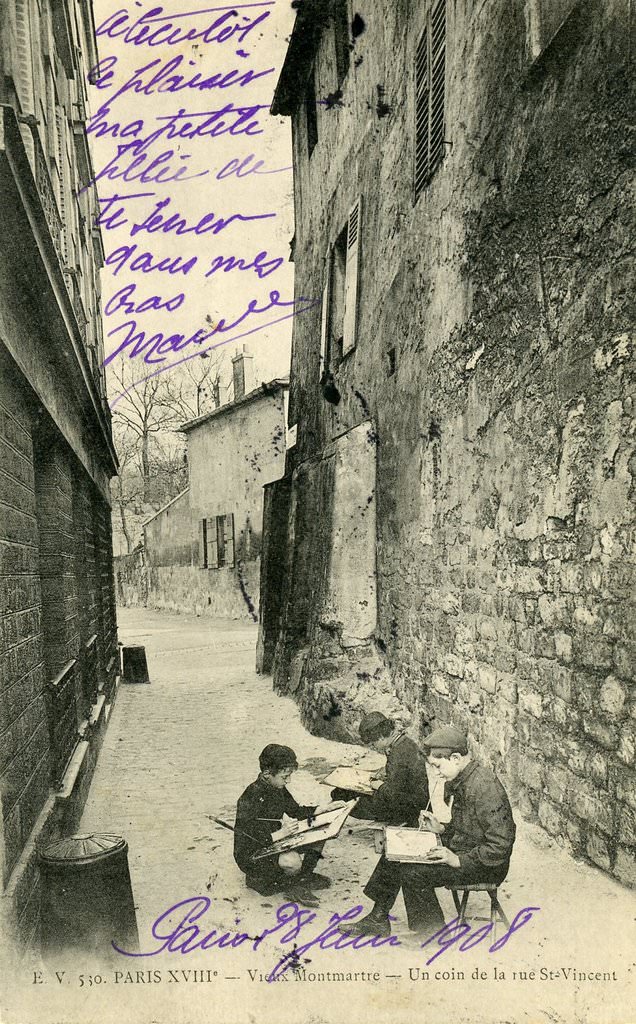 à bientôt
le plaisir
ma petite
fillie de
te serrer
dans mes
bras
Marcelle
Paris 28 Juin 1908
E. V. 530. PARIS XVIIIᵉ — Vieux Montmartre — Un coin de la rue St-Vincent